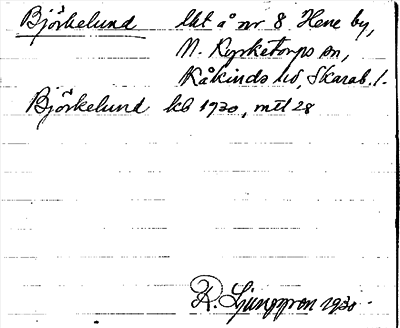 Björkelund lht å nr 8 Hene by,
N. Kyrketorps sn,
Kåkinds hd, Skarab. l.
Björkelund kb 1930, mtl 28
R. Ljunggren 1930